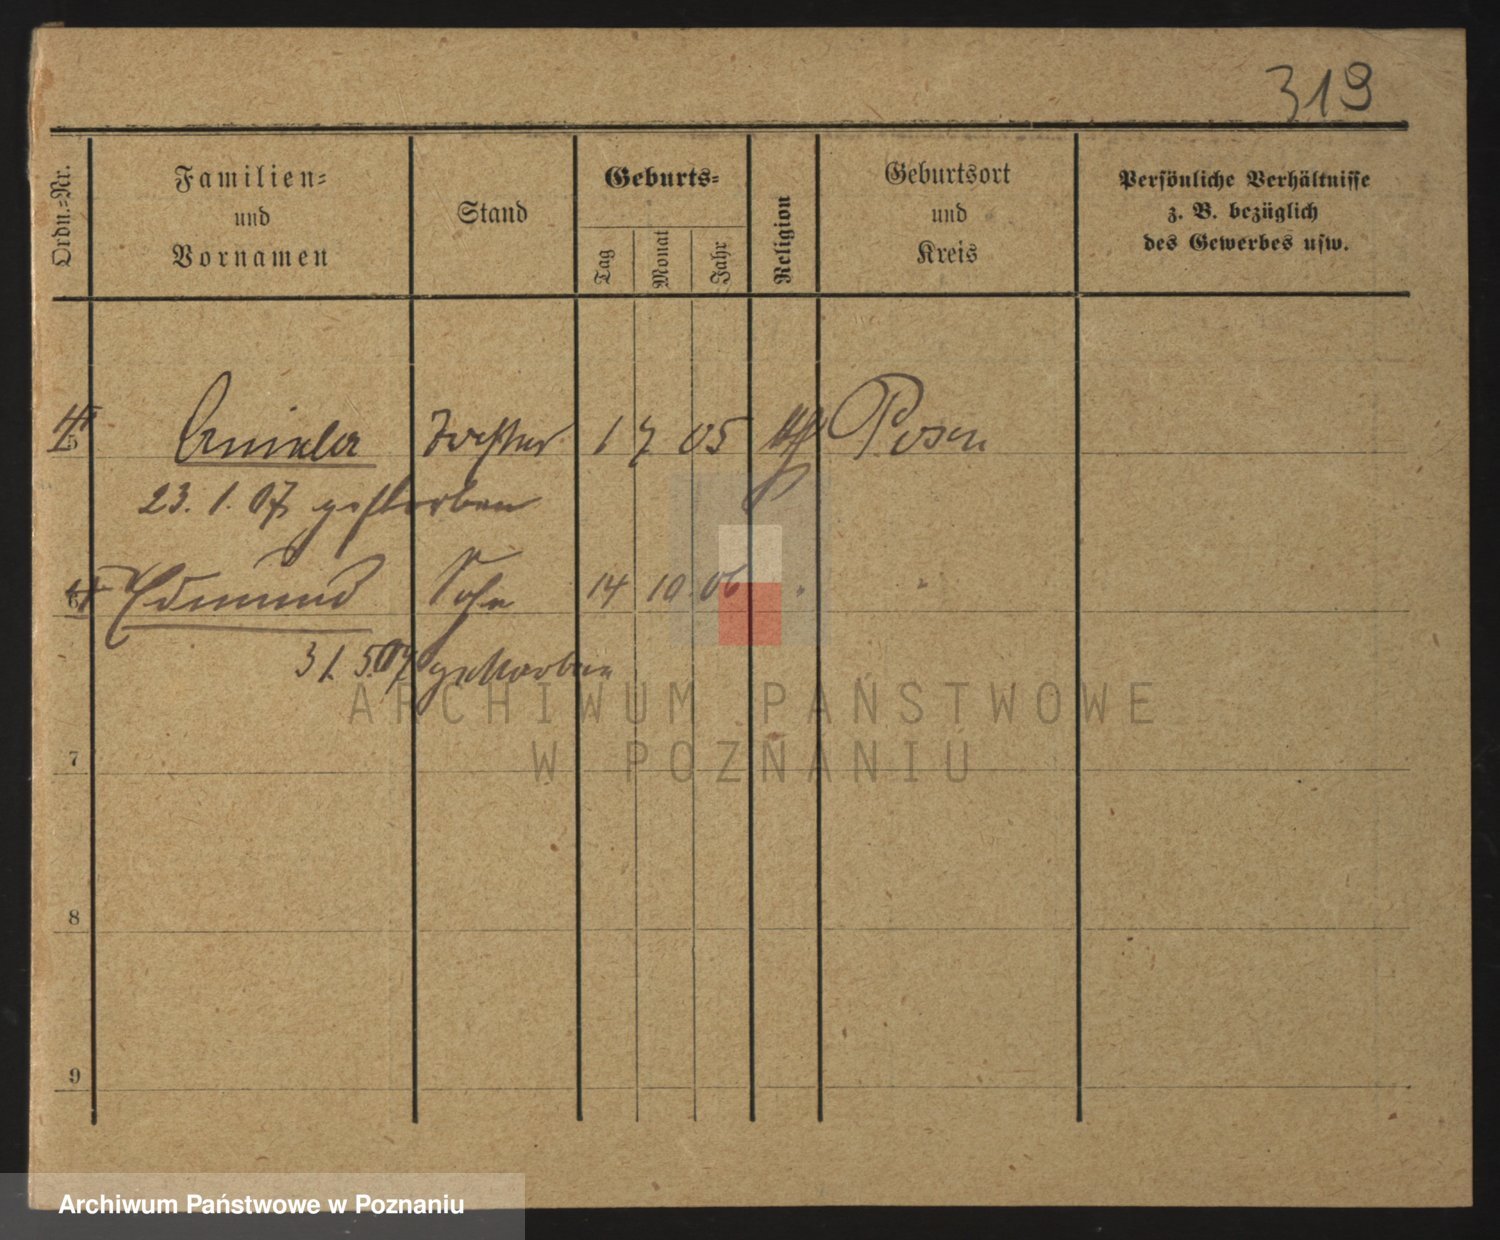 319
Ordn.=Nr.
Familien=
und
Vornamen
Stand
Geburts=
Tag
Monat
Jahr
Religion
Geburtsort
und
Kreis
Persönliche Verhältnisse
z. B. bezüglich
des Gewerbes usw.
5 Aniela Tochter 1 7 05 kth Posen
23. 1. 07 gestorben
6 Edmund Sohn 14 10 06 " "
31. 5. 07 gestorben
ARCHIWUM PAŃSTWOWE
W POZNANIU
7
8
9
Archiwum Państwowe w Poznaniu